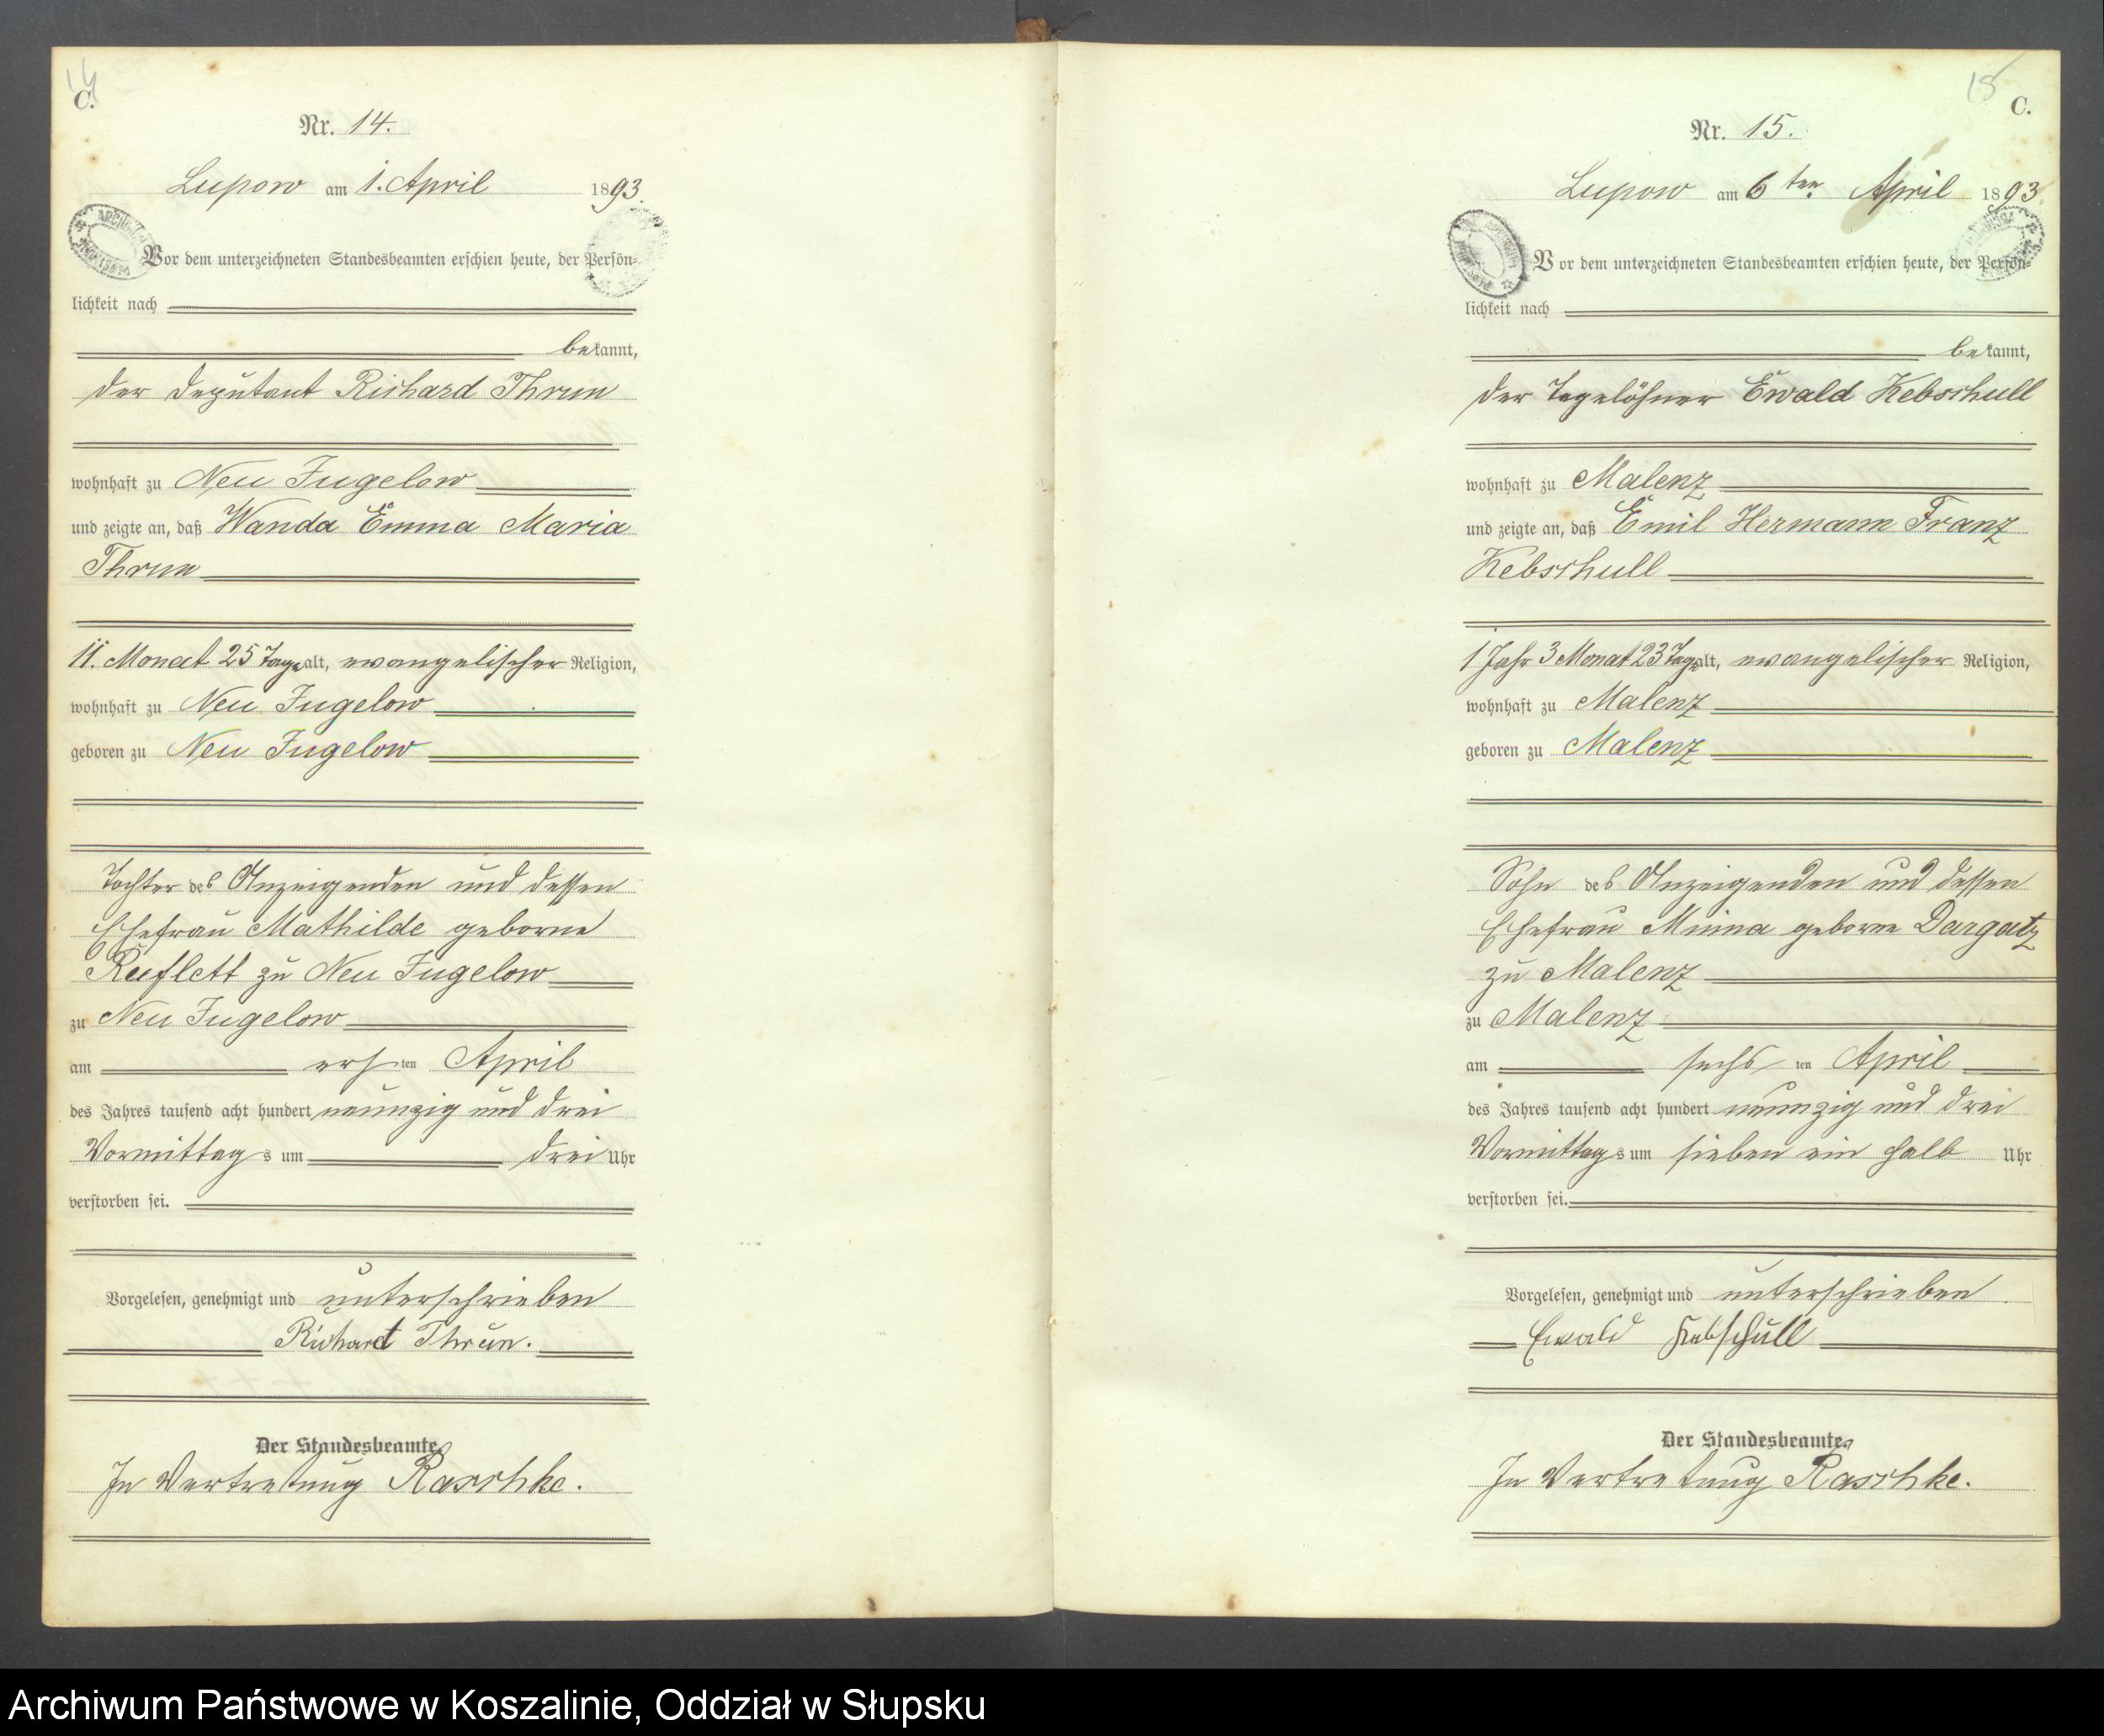 14
C.
Nr. 14.
Lupow am 1. April 1893.
Vor dem unterzeichneten Standesbeamten erschien heute, der Persön-
lichkeit nach
bekannt,
der Deputant Richard Thrun
wohnhaft zu Neu Jugelow
und zeigte an, daß Wanda Emma Maria
Thrun
11. Monat 25 Tage alt, evangelischer Religion,
wohnhaft zu Neu Jugelow
geboren zu Neu Jugelow
Tochter des Anzeigenden und dessen
Ehefrau Mathilde geborne
Ruflett zu Neu Jugelow
zu Neu Jugelow
am ersten April
des Jahres tausend acht hundert neunzig und drei
Vormittags um drei Uhr
verstorben sei.
Vorgelesen, genehmigt und unterschrieben
Richard Thrun.
Der Standesbeamte.
In Vertretung Raschke.
15
C.
Nr. 15.
Lupow am 6ten April 1893.
Vor dem unterzeichneten Standesbeamten erschien heute, der Persön-
lichkeit nach
bekannt,
der Tagelöhner Ewald Kebschull
wohnhaft zu Malenz
und zeigte an, daß Emil Hermann Franz
Kebschull
1 Jahr 3 Monat 23 Tage alt, evangelischer Religion,
wohnhaft zu Malenz
geboren zu Malenz
Sohn des Anzeigenden und dessen
Ehefrau Minna geborne Dargatz
zu Malenz
zu Malenz
am sechsten April
des Jahres tausend acht hundert neunzig und drei
Vormittags um sieben ein halb Uhr
verstorben sei.
Vorgelesen, genehmigt und unterschrieben
Ewald Kebschull
Der Standesbeamte.
In Vertretung Raschke.
Archiwum Państwowe w Koszalinie, Oddział w Słupsku